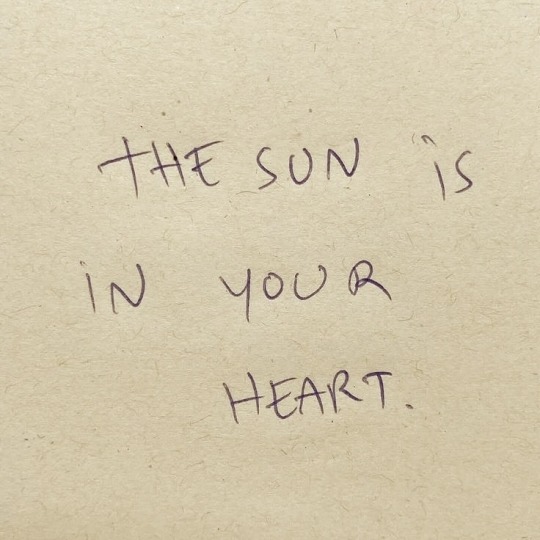 THE SUN iS
iN YOUR
HEART.